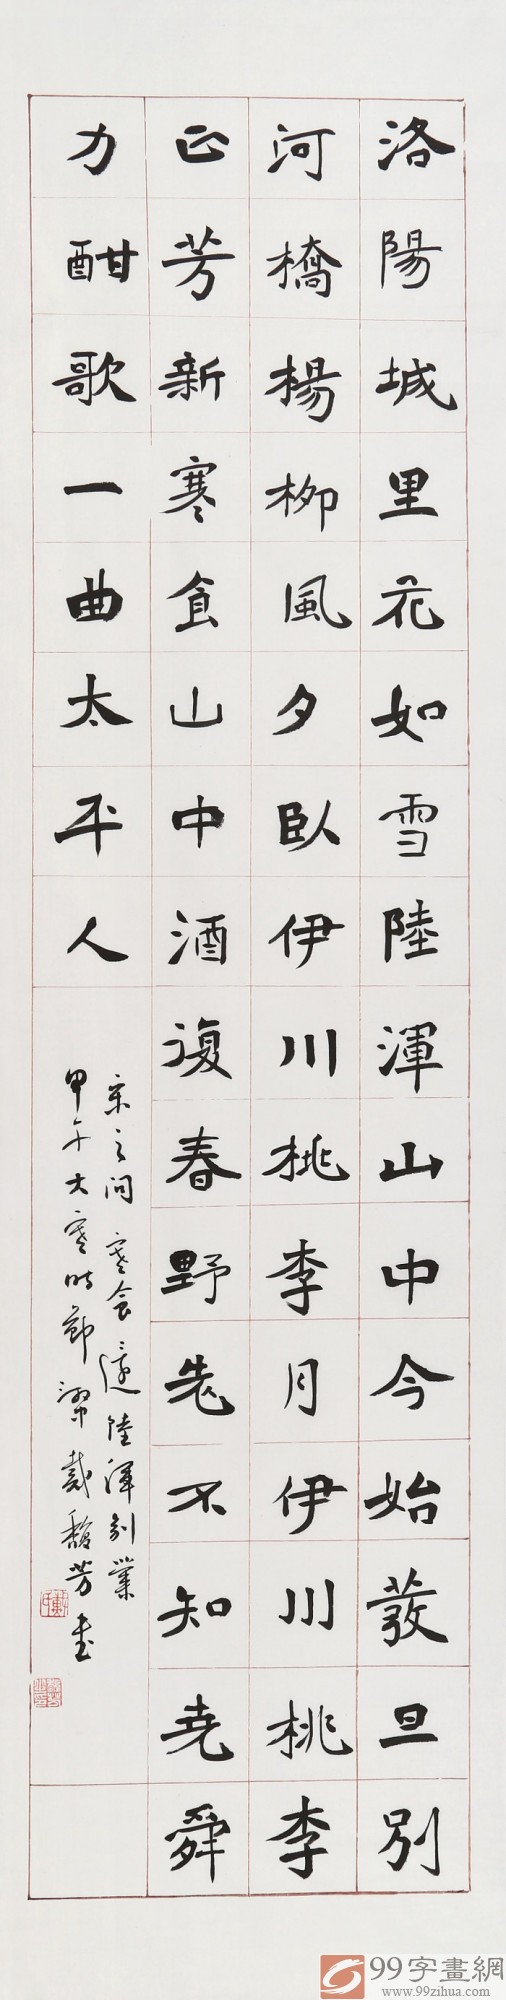 洛陽城里花如雪陸渾山中今始蕟旦別
河橋楊柳風夕臥伊川桃李月伊川桃李
正芳新寒食山中酒復春野老不知堯舜
力酣歌一曲太平人
宋之問寒食還陸渾別業
甲午大寒時節 戴馥芳書
99字畫網
www.99zihua.com